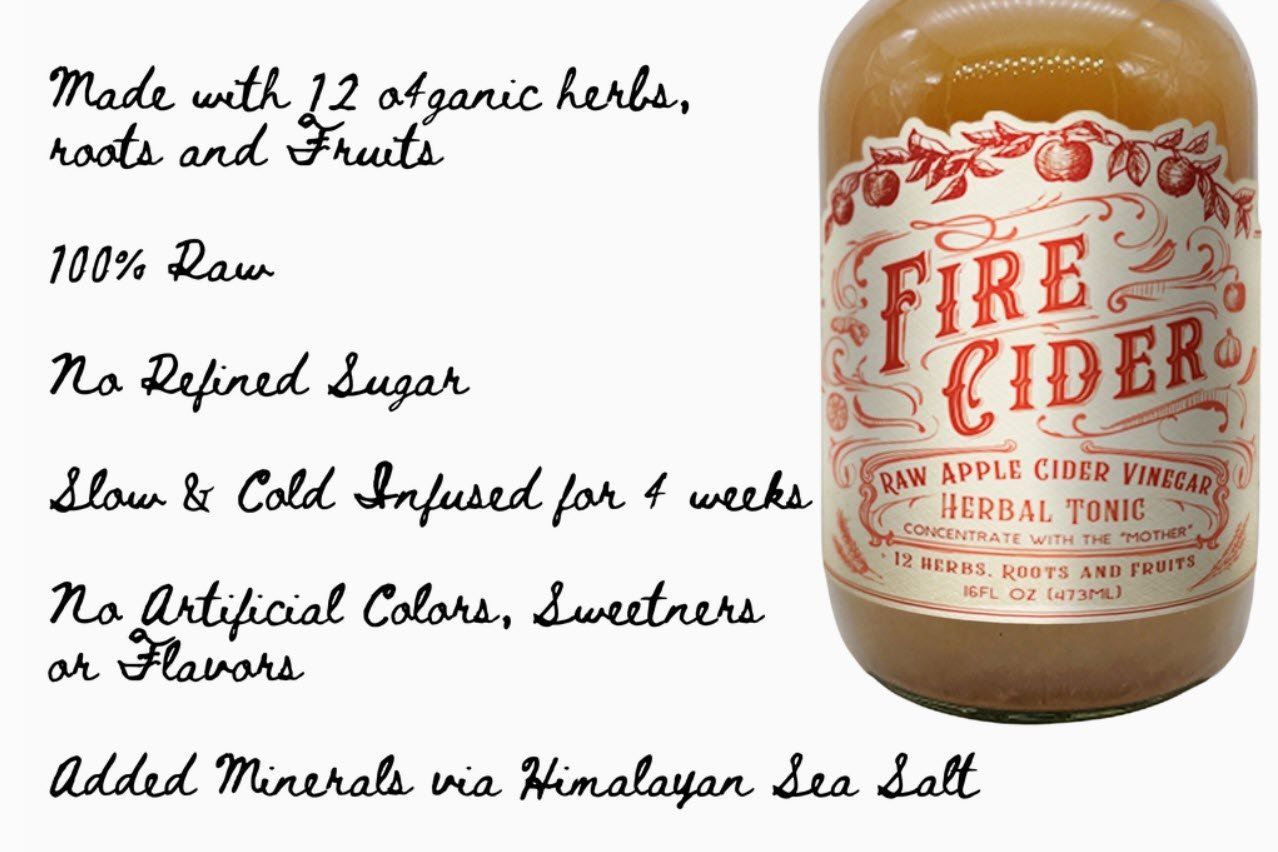 Made with 12 o4ganic herbs,
roots and Fruits
100% Raw
No Refined Sugar
Slow & Cold Infused for 4 weeks
No Artificial Colors, Sweetners
or Flavors
Added Minerals via Himalayan Sea Salt
FIRE
CIDER
RAW APPLE CIDER VINEGAR
HERBAL TONIC
CONCENTRATE WITH THE "MOTHER"
12 HERBS, ROOTS AND FRUITS
16FL OZ (473ML)